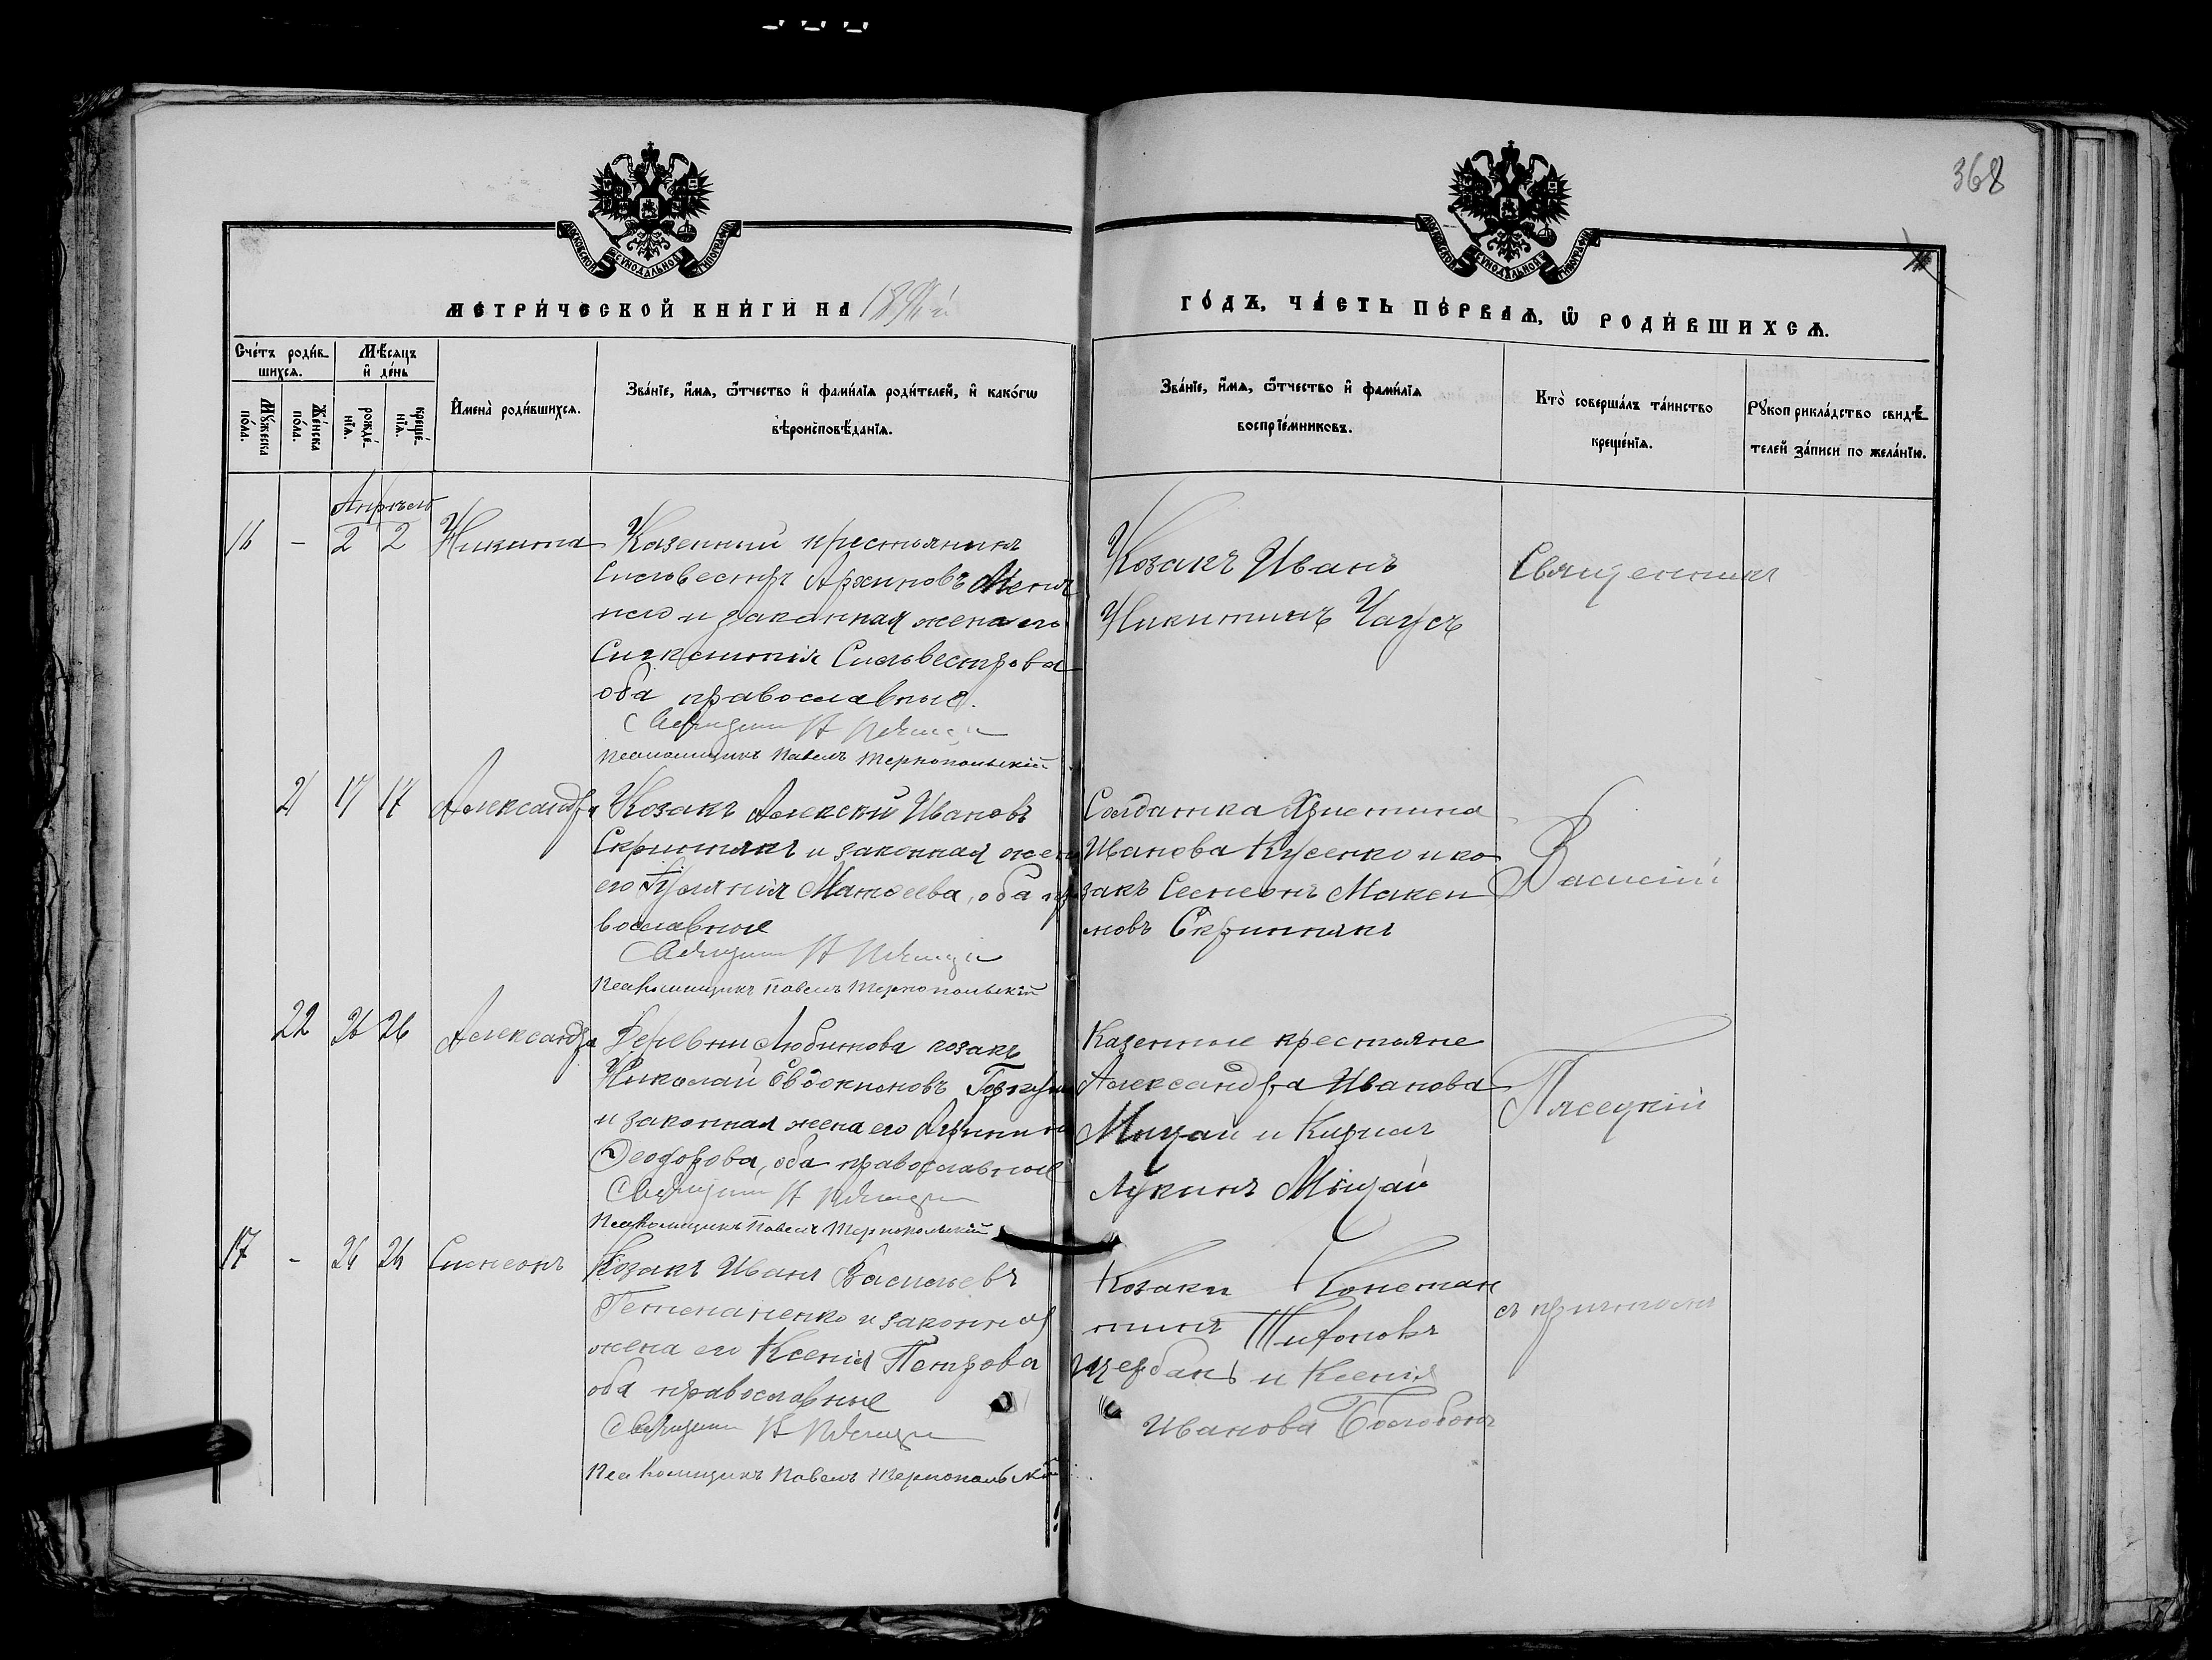 368
МОСКОВСКОЙ СѴНОДАЛЬНОЙ ТИПОГРАФІИ
МОСКОВСКОЙ СѴНОДАЛЬНОЙ ТИПОГРАФІИ
МЕТРИ́ЧЕСКОЙ КНИ́ГИ НА
ГО́ДЪ, ЧА́СТЬ ПЕ́РВАѦ, Ѽ РОДИ́ВШИХСѦ.
Сче́тъ роди́вшихсѧ.
Мꙋ́жеска по́ла.
Же́нска по́ла.
Мѣ́сяцъ и҆ де́нь
рожде́нїѧ.
креще́нїѧ.
И҆мена̀ роди́вшихсѧ.
Зва́нїе, и҆́мѧ, ѻ҆́тчество и҆ фами́лїѧ роди́телей, и҆ како́гѡ
вѣроисповѣ́данїѧ.
Зва́нїе, и҆́мѧ, ѻ҆́тчество и҆ фами́лїѧ
воспрїе́мниковъ.
Кто̀ соверша́лъ та́инство
креще́нїѧ.
Рꙋкоприкла́дство свидѣ́телей за́писи по жела́нїю.
Апрѣль
16 - 2 2 Никита
Казенный крестьянинъ
Сильвестръ Архиповъ
и законная жена его
Синклитія Сильвестрова
оба православные.
Псаломщикъ Павелъ Тернопольскій
Козакъ Иванъ
Никитинъ Чаусъ
Священникъ
21 17 17 Александра
Козакъ Алексѣй Ивановъ
Скрипникъ и законная жена
его Іуліанія Матѳеева, оба пра
вославные
Псаломщикъ Павелъ Тернопольскій
Солдатка Христина
Иванова Кусенко и ко
закъ Семеонъ Макси
мовъ Скрипникъ
Василій
22 26 26 Александра
Деревни Любимова козакъ
Николай Евдокимовъ
и законная жена его
Ѳеодорова, оба православные
Псаломщикъ Павелъ Тернопольскій
Казенные крестьяне
Александра Иванова
Мицай и Кириллъ
Лукинъ Мицай
Пясецкій
17 - 26 26 Симеонъ
Козакъ Иванъ Васильевъ
Гетманенко и законная
жена его Ксенія Петрова
оба православные
Псаломщикъ Павелъ Тернопольскій
Козаки Констан
тинъ Тифоновъ
Щербакъ и Ксенія
Иванова
съ причтомъ